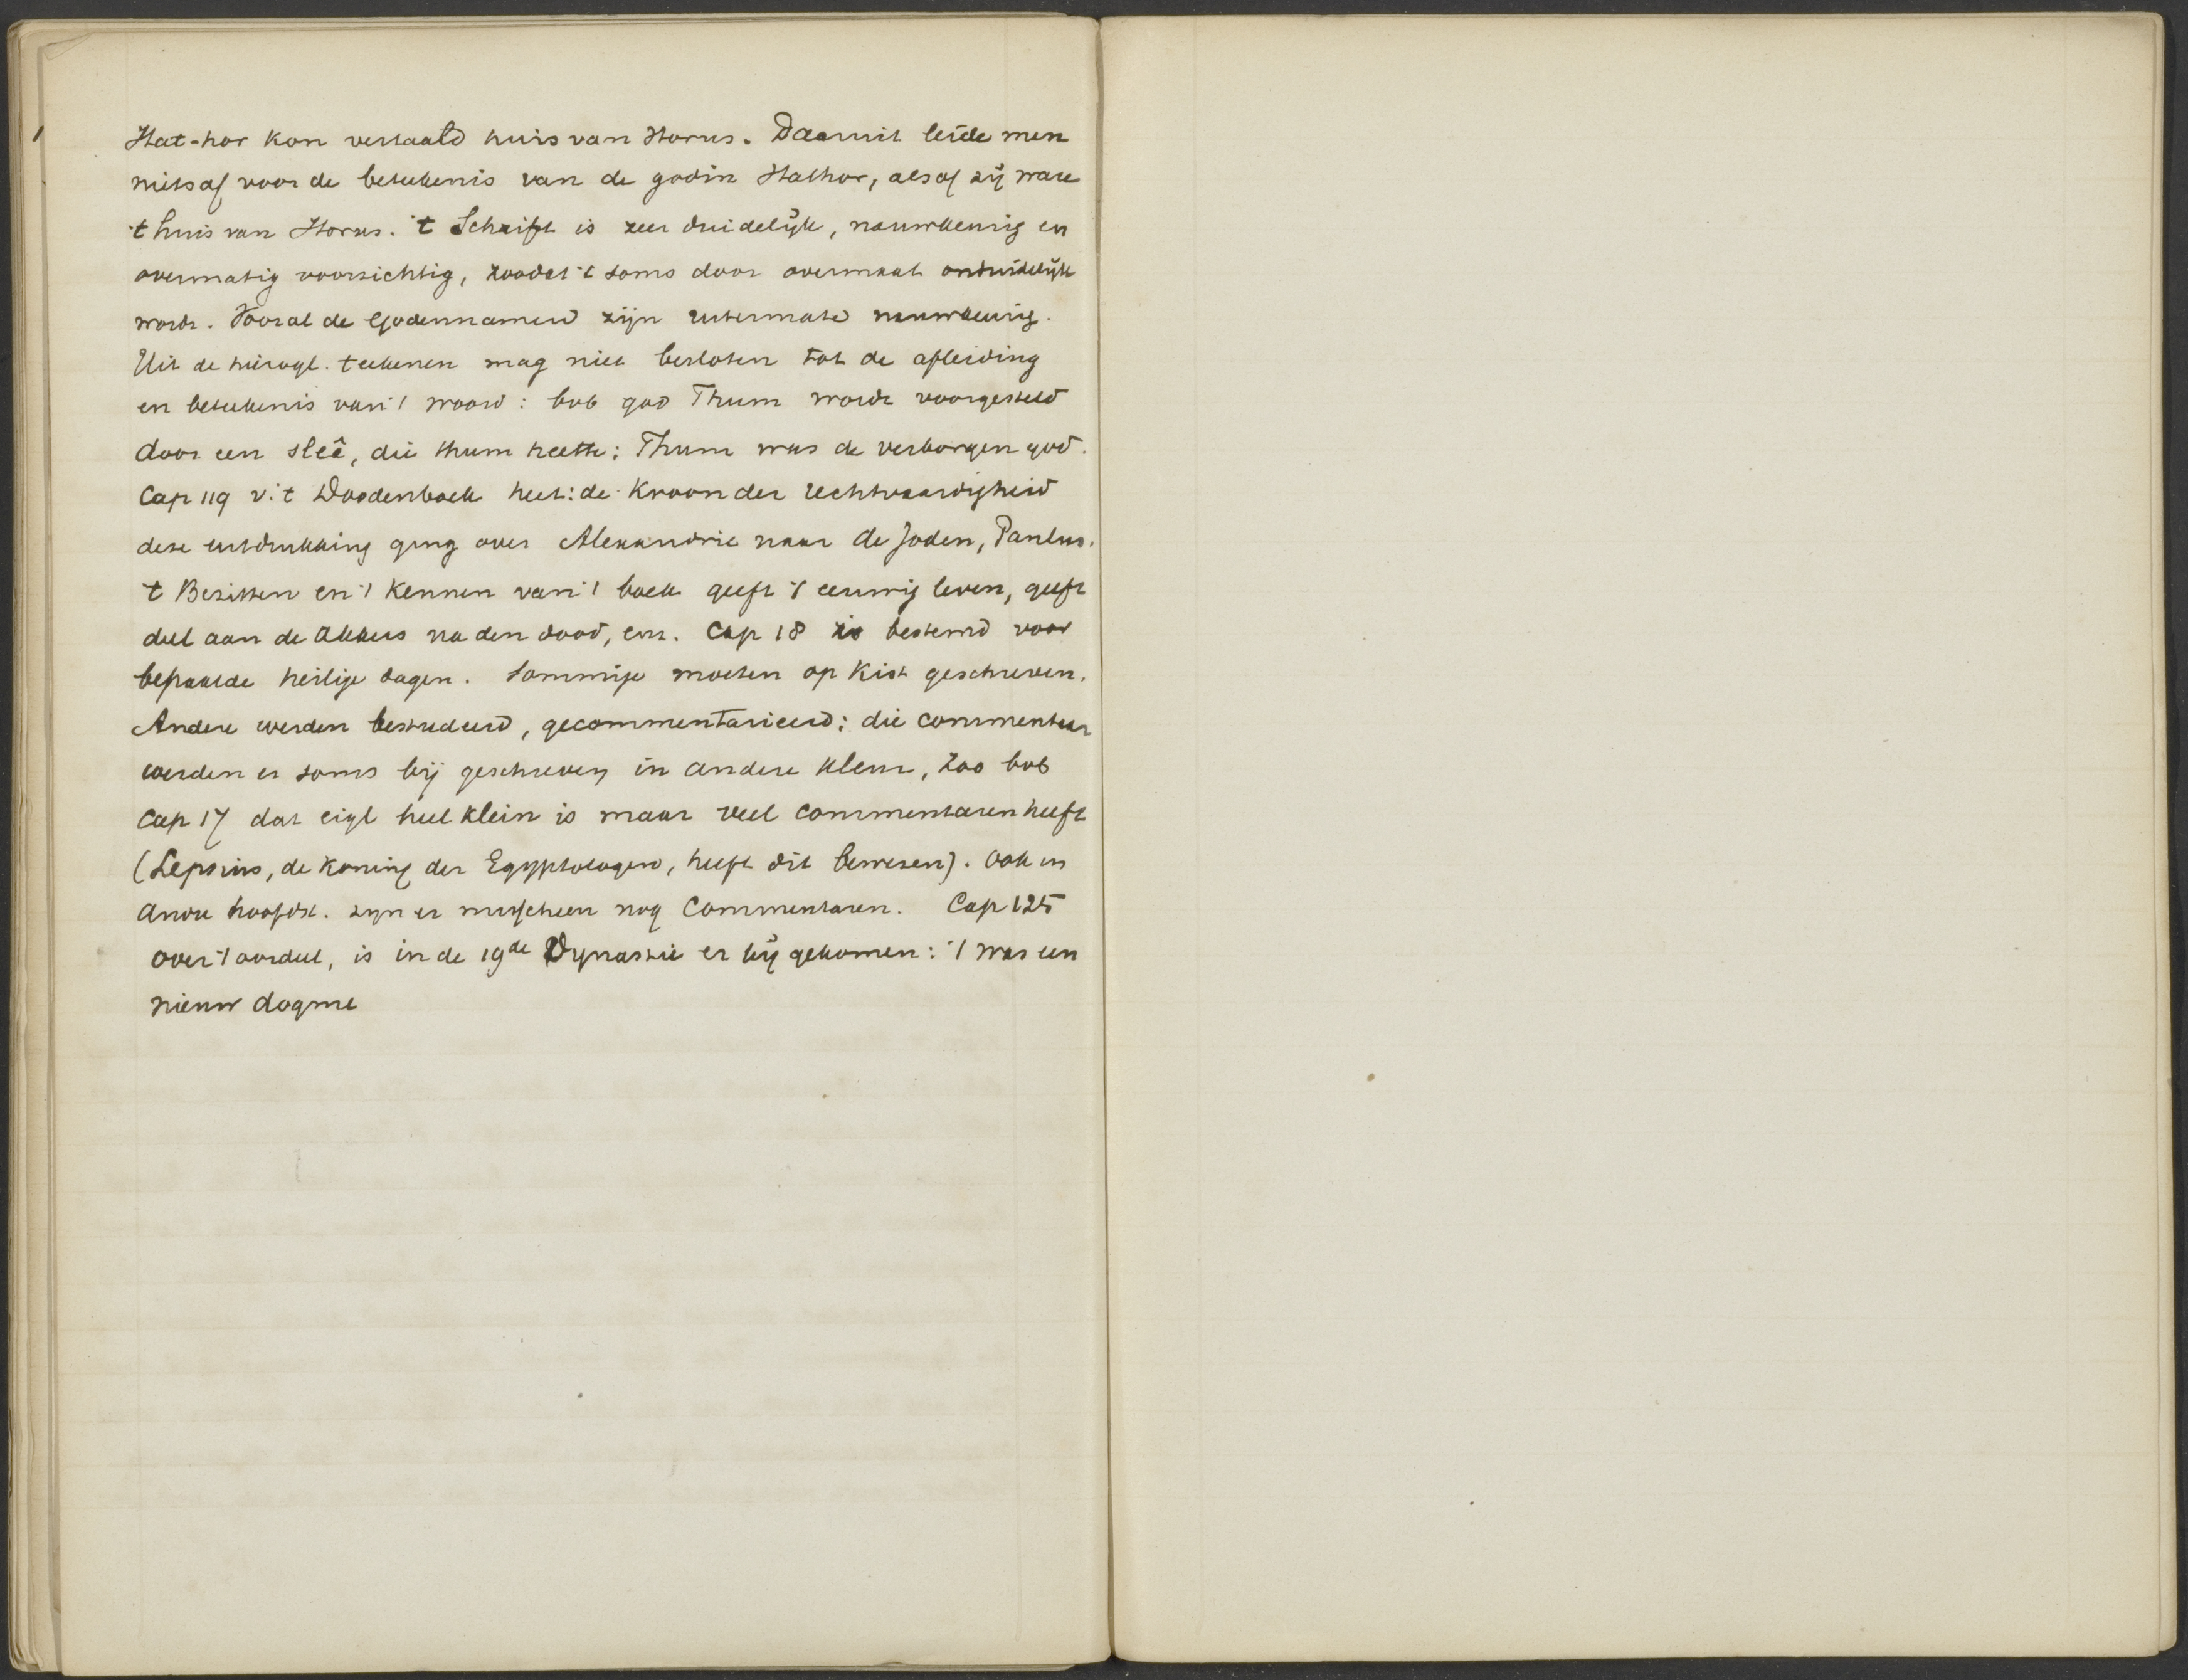 Hat-hor kon vertaald huis van Horus. Daaruit leide men
niets af voor de beteekenis van de godin Hathor, alsof zij ware
't huis van Horus. 't Schrift is zeer duidelijk, nauwkeurig en
overmatig voorzichtig, zoodat 't soms door overmaat onduidelijk
wordt. Vooral de Godennamen zijn uitermate nauwkeurig.
Uit de hierogl. teekenen mag niet besloten tot de afleiding
en beteekenis van 't woord: bvb god Thum wordt voorgesteld
door een sleê, die thum heette; Thum was de verborgen god.
Cap 119 v. 't Doodenboek heet: de Kroon der rechtvaardigheid
deze uitdrukking ging over Alexandrie naar de Joden, Paulus.
't Bezitten en 't Kennen van 't boek geeft 't eeuwig leven, geeft
deel aan de akkers na den dood, enz. Cap 18 is bestemd voor
bepaalde heilige dagen. Sommige moeten op Kist geschreven.
Andere werden bestudeerd, gecommentarieerd; die commentaar
werden er soms bij geschreven in andere kleur, zoo bvb
Cap 17 dat eigl heel klein is maar veel commentaren heeft
(Lepsius, de Koning der Egyptologen, heeft dit bewezen). Ook in
andre hoofdst. zyn er misschien nog Commentaren. Cap 125
over 't oordeel, is in de 19de Dynastie er bij gekomen: 't was een
nieuw dogme